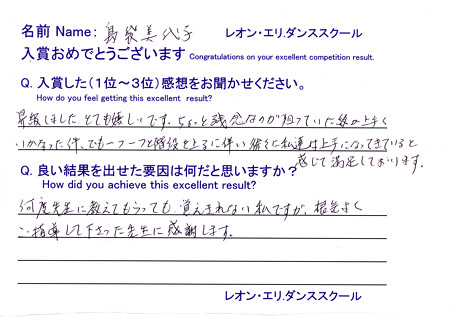 名前 Name: 島袋美代子 レオン・エリ.ダンススクール
入賞おめでとうございます Congratulations on your excellent competition result.
Q. 入賞した(1位～3位)感想をお聞かせください。
How do you feel getting this excellent result?
昇級しました。とても嬉しいです。ちょっと残念なのが担っていた級が上手く
いかなった件、でも一つ一つと階段を上るに伴い徐々に私達は上手になってきていると
感じて満足しております。
Q. 良い結果を出せた要因は何だと思いますか?
How did you achieve this excellent result?
何度先生に教えてもらっても覚えきれない私ですが、根気よく
ご指導して下さった先生に感謝します。
レオン・エリ.ダンススクール